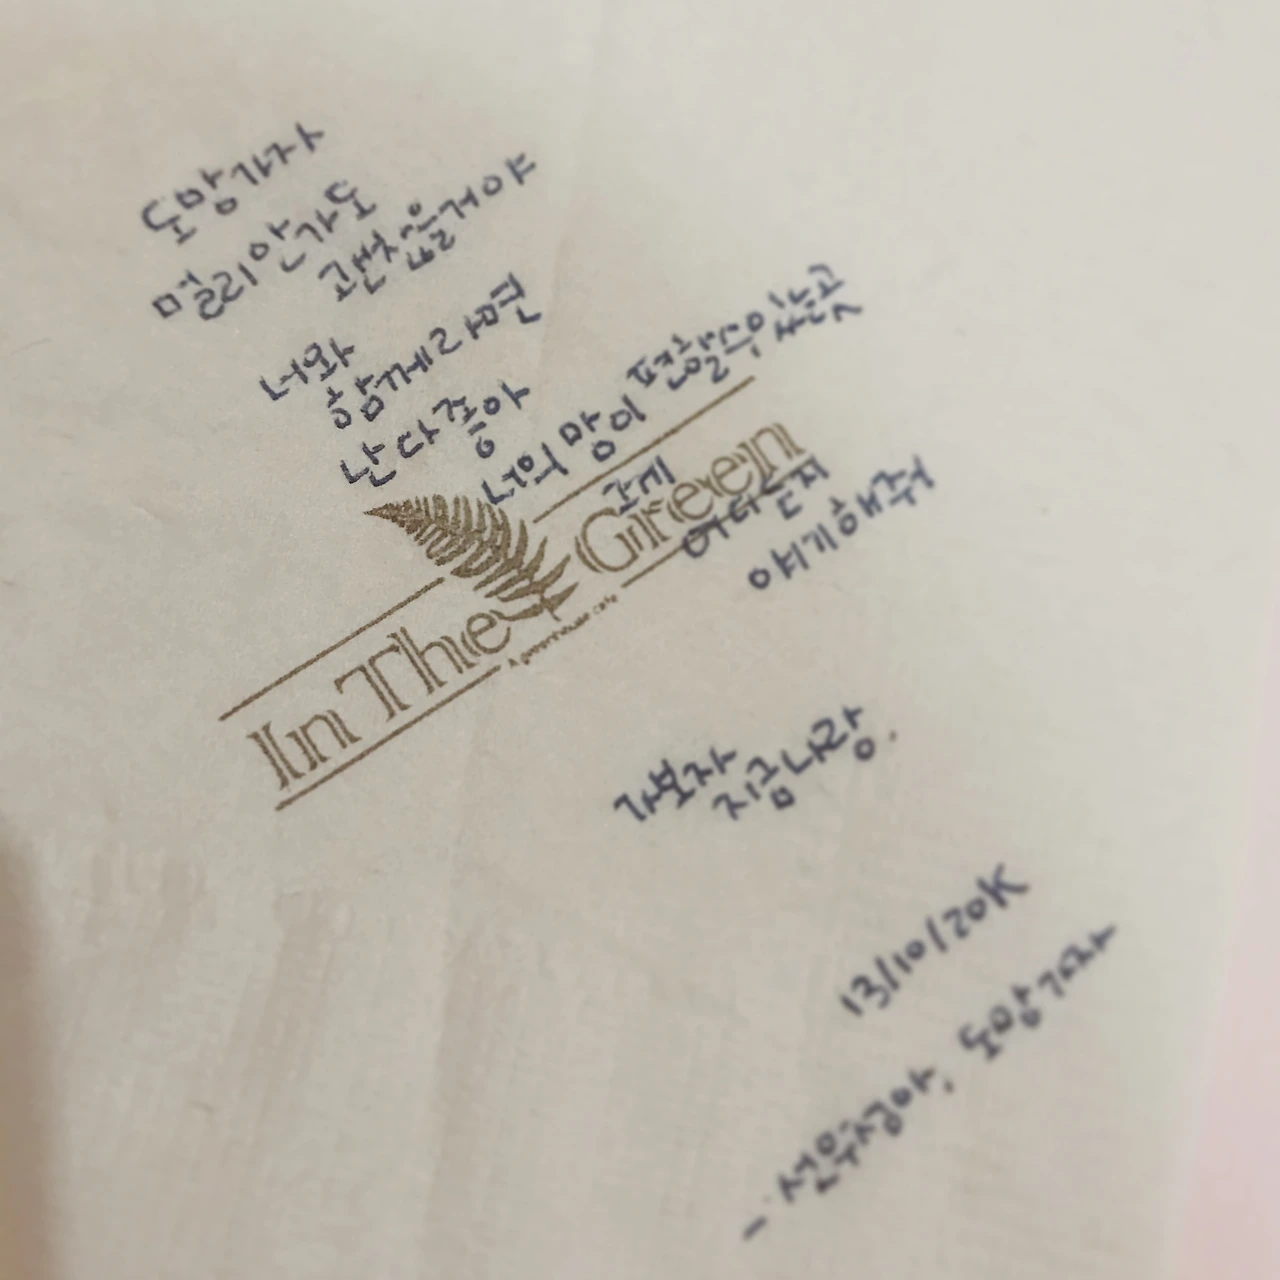 도망가자
멀리 안가도
괜찮을거야
너와
함께라면
난 다 좋아
너의 맘이 편할 수 있는 곳
그게
어디든지
얘기해줘
In The Green
A greenhouse cafe
가보자
지금 나랑.
13/10/20K
- 선우정아, 도망가자